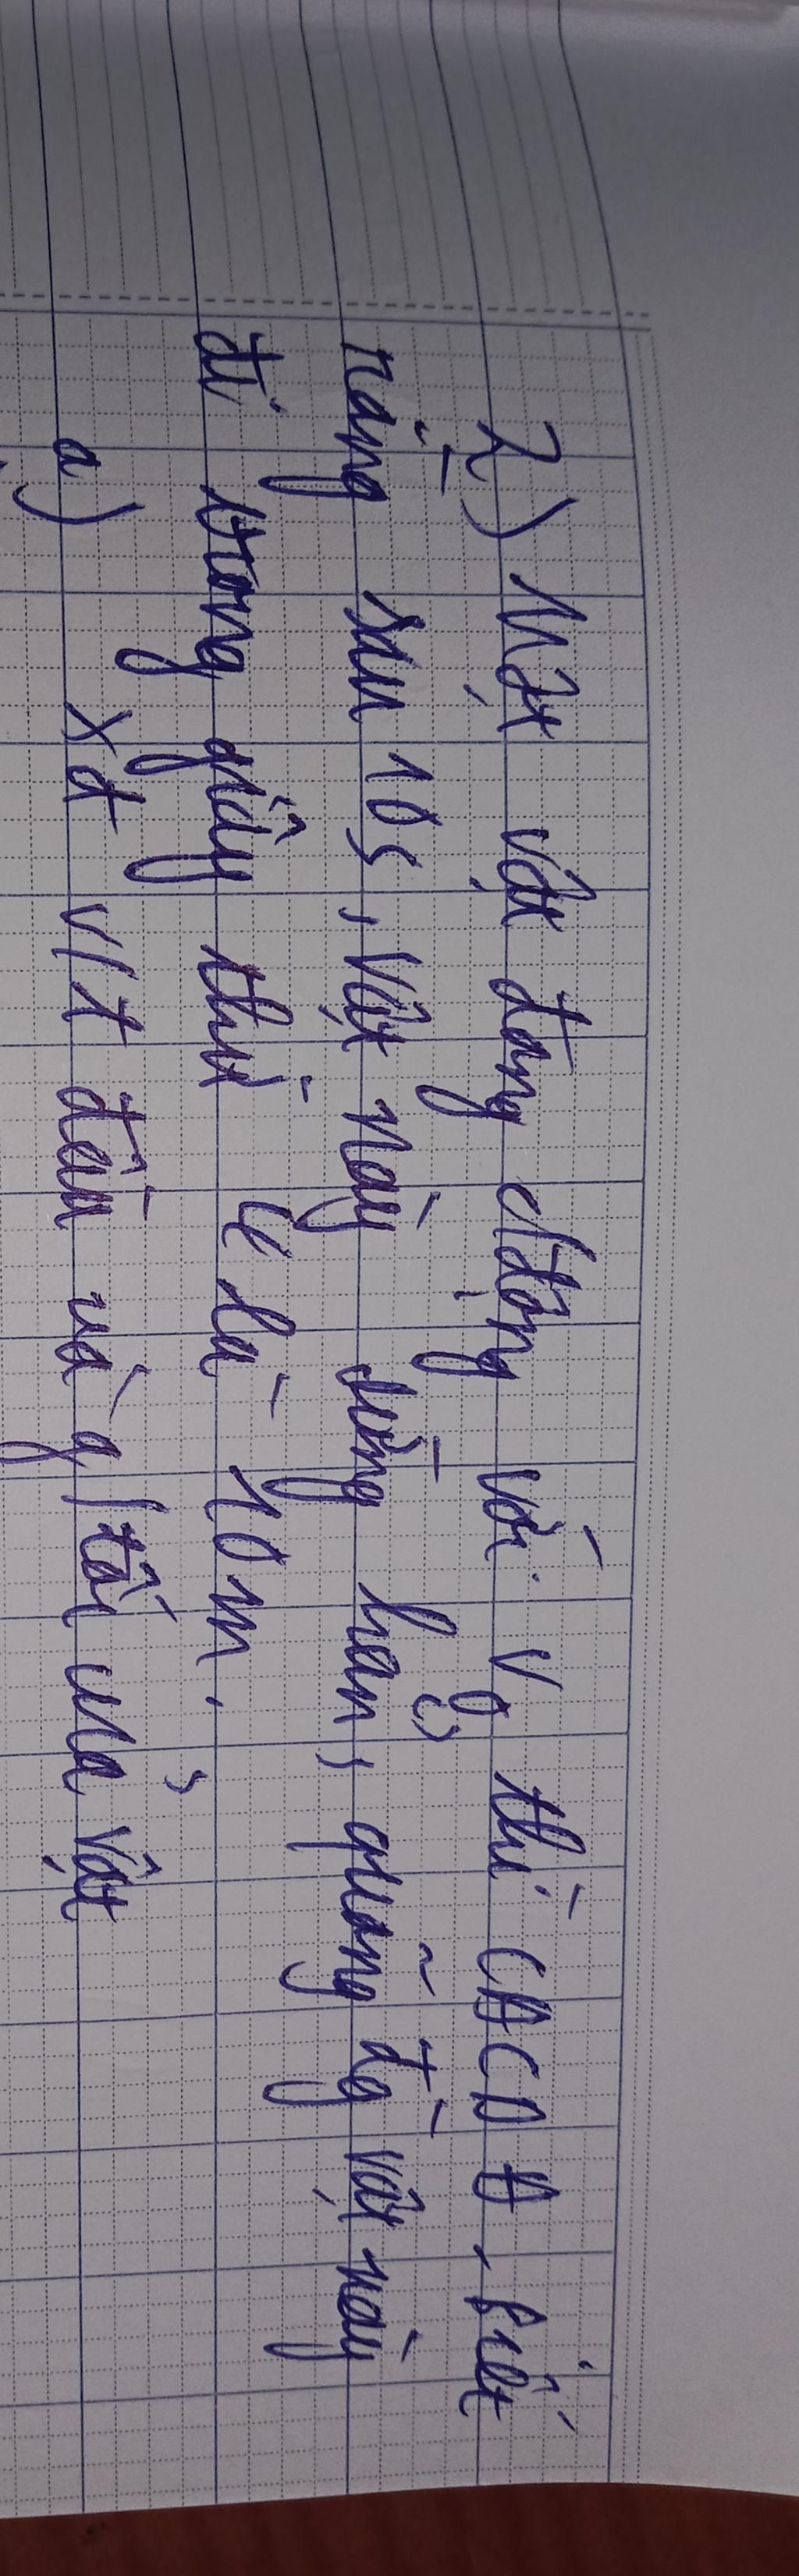 2) Một vật đang c/động với v₀ thì CĐCDĐ, biết
rằng sau 10s, vật này dừng hẳn, quãng đg vật này
đi trong giây thứ 4 là 10m.
a) xđ v/t đầu và g/tốc của vật